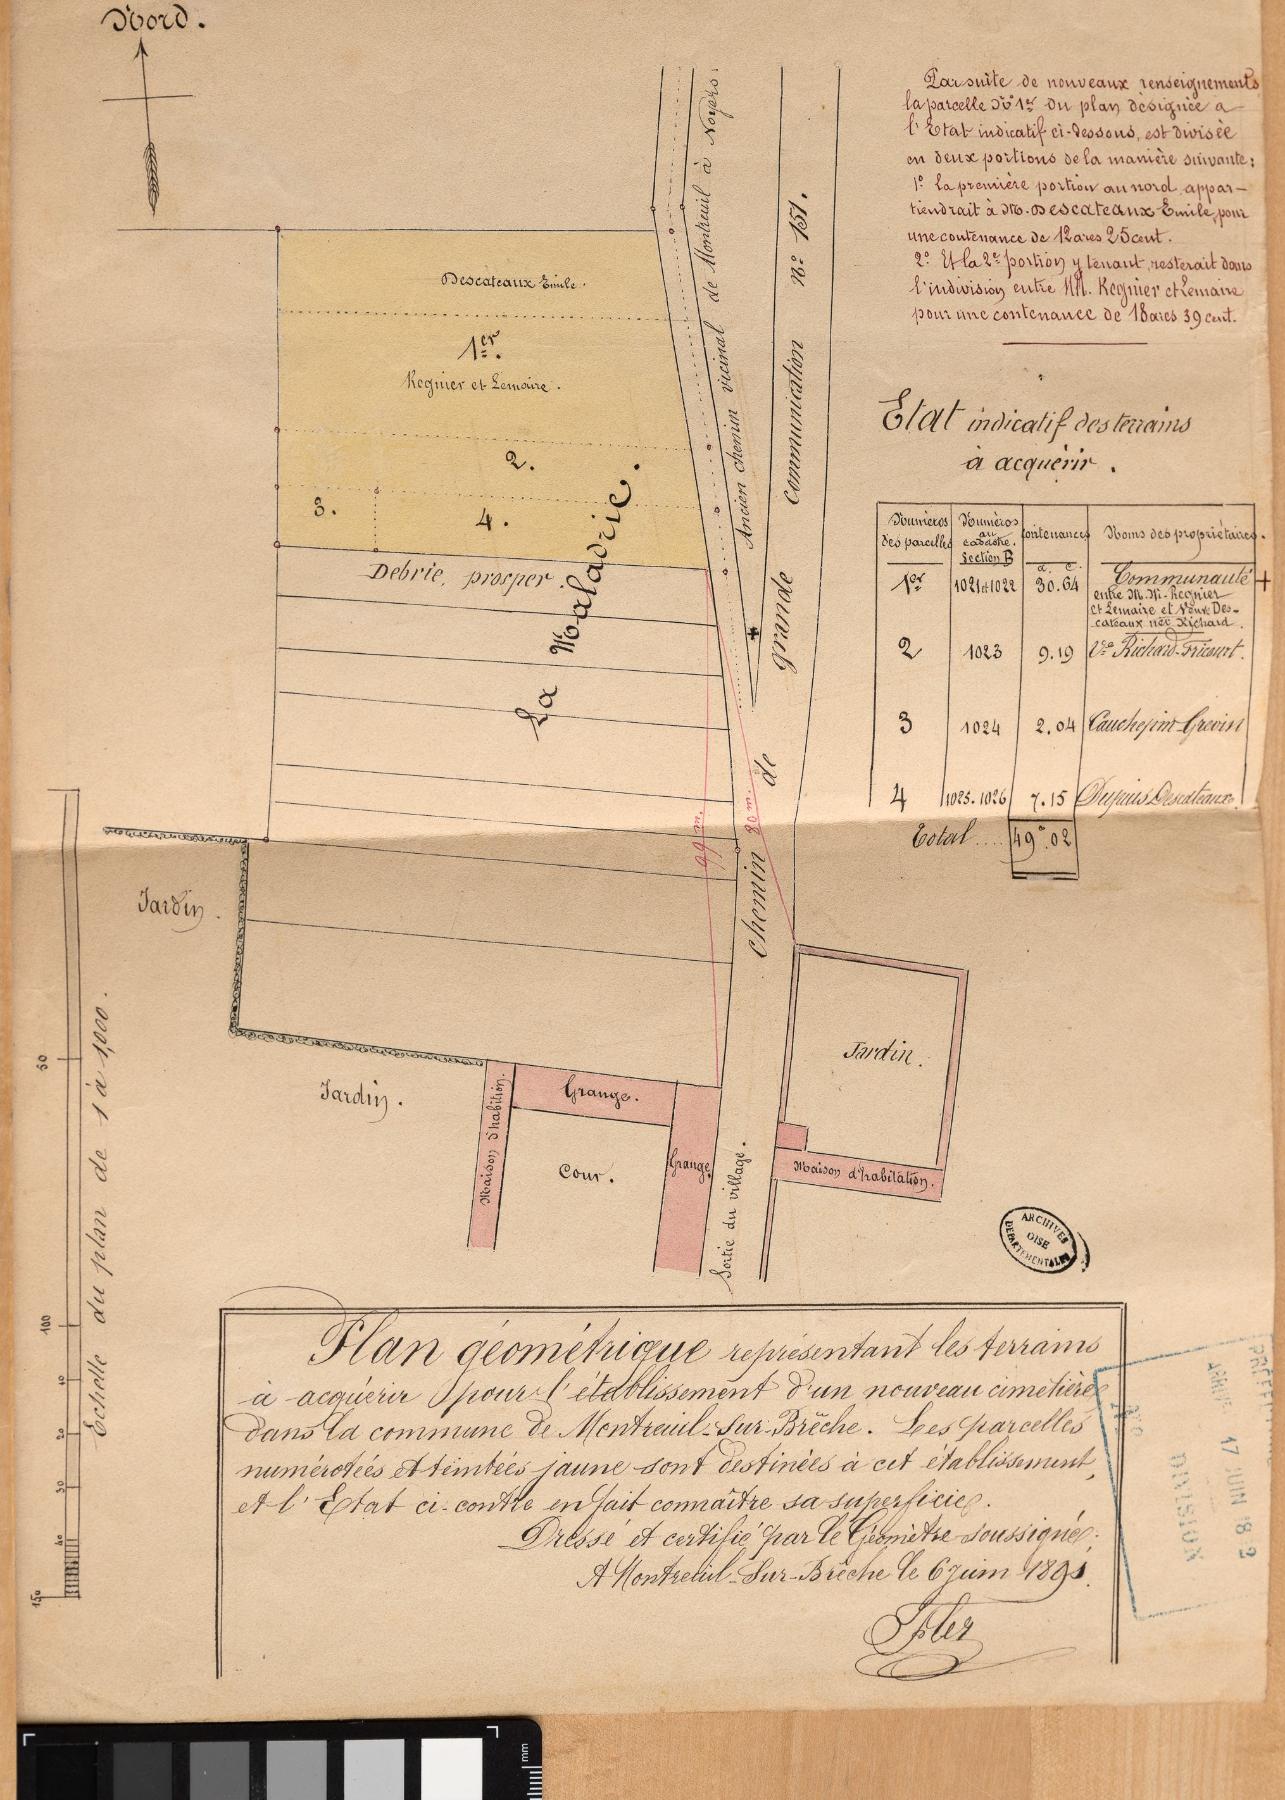 Nord.
Par suite de nouveaux renseignements
la parcelle N° 1er du plan désignée a
l'Etat indicatif ci-dessous, est divisée
en deux portions de la manière suivante:
1° la première portion au nord appar-
tiendrait à M. Descateaux Emile, pour
une contenance de 12 ares 25 cent.
2° Et la 2e portion y tenant, resterait dans
l'indivision entre MM. Regnier et Lemaire
pour une contenance de 18 ares 39 cent.
Etat indicatif des terrains
à acquérir.
Numéros des parcelles | Numéros au cadastre. Section B | Contenances | Noms des propriétaires.
a. c.
1er 1021 et 1022 30.64 Communauté +
entre M.M. Regnier
et Lemaire et Veuve Des-
cateaux née Richard.
2 1023 9.19 Vve Richard-Fricourt.
3 1024 2.04 Cauchepin-Grevin
4 1025.1026 7.15 Dupuis Descateaux.
Total .... 49a.02
Descateaux Emile.
1er.
Regnier et Lemaire.
2.
3.
4.
Debrie, prosper.
La Maladrie.
Ancien chemin vicinal de Montreuil à Noyers.
chemin de grande communication n° 151.
99 m.
80 m.
Jardin.
Jardin.
Jardin.
Maison d'habition.
Grange.
Cour.
Grange
Sortie du village.
Maison d'habitation.
ARCHIVES
OISE
DÉPARTEMENTALES
Echelle du plan de 1 à 1,000.
50
100
10
20
30
40
150
Plan géométrique représentant les terrains
à acquérir pour l'établissement d'un nouveau cimetière
dans la commune de Montreuil-Sur-Brêche. Les parcelles
numérotées et teintées jaune sont destinées à cet établissement,
et l'Etat ci-contre en fait connaître sa superficie.
Dressé et certifié par le Géomètre soussigné.
A Montreuil-Sur-Brêche le 6 juin 1891.
17 JUIN 18
DIVISION
mm